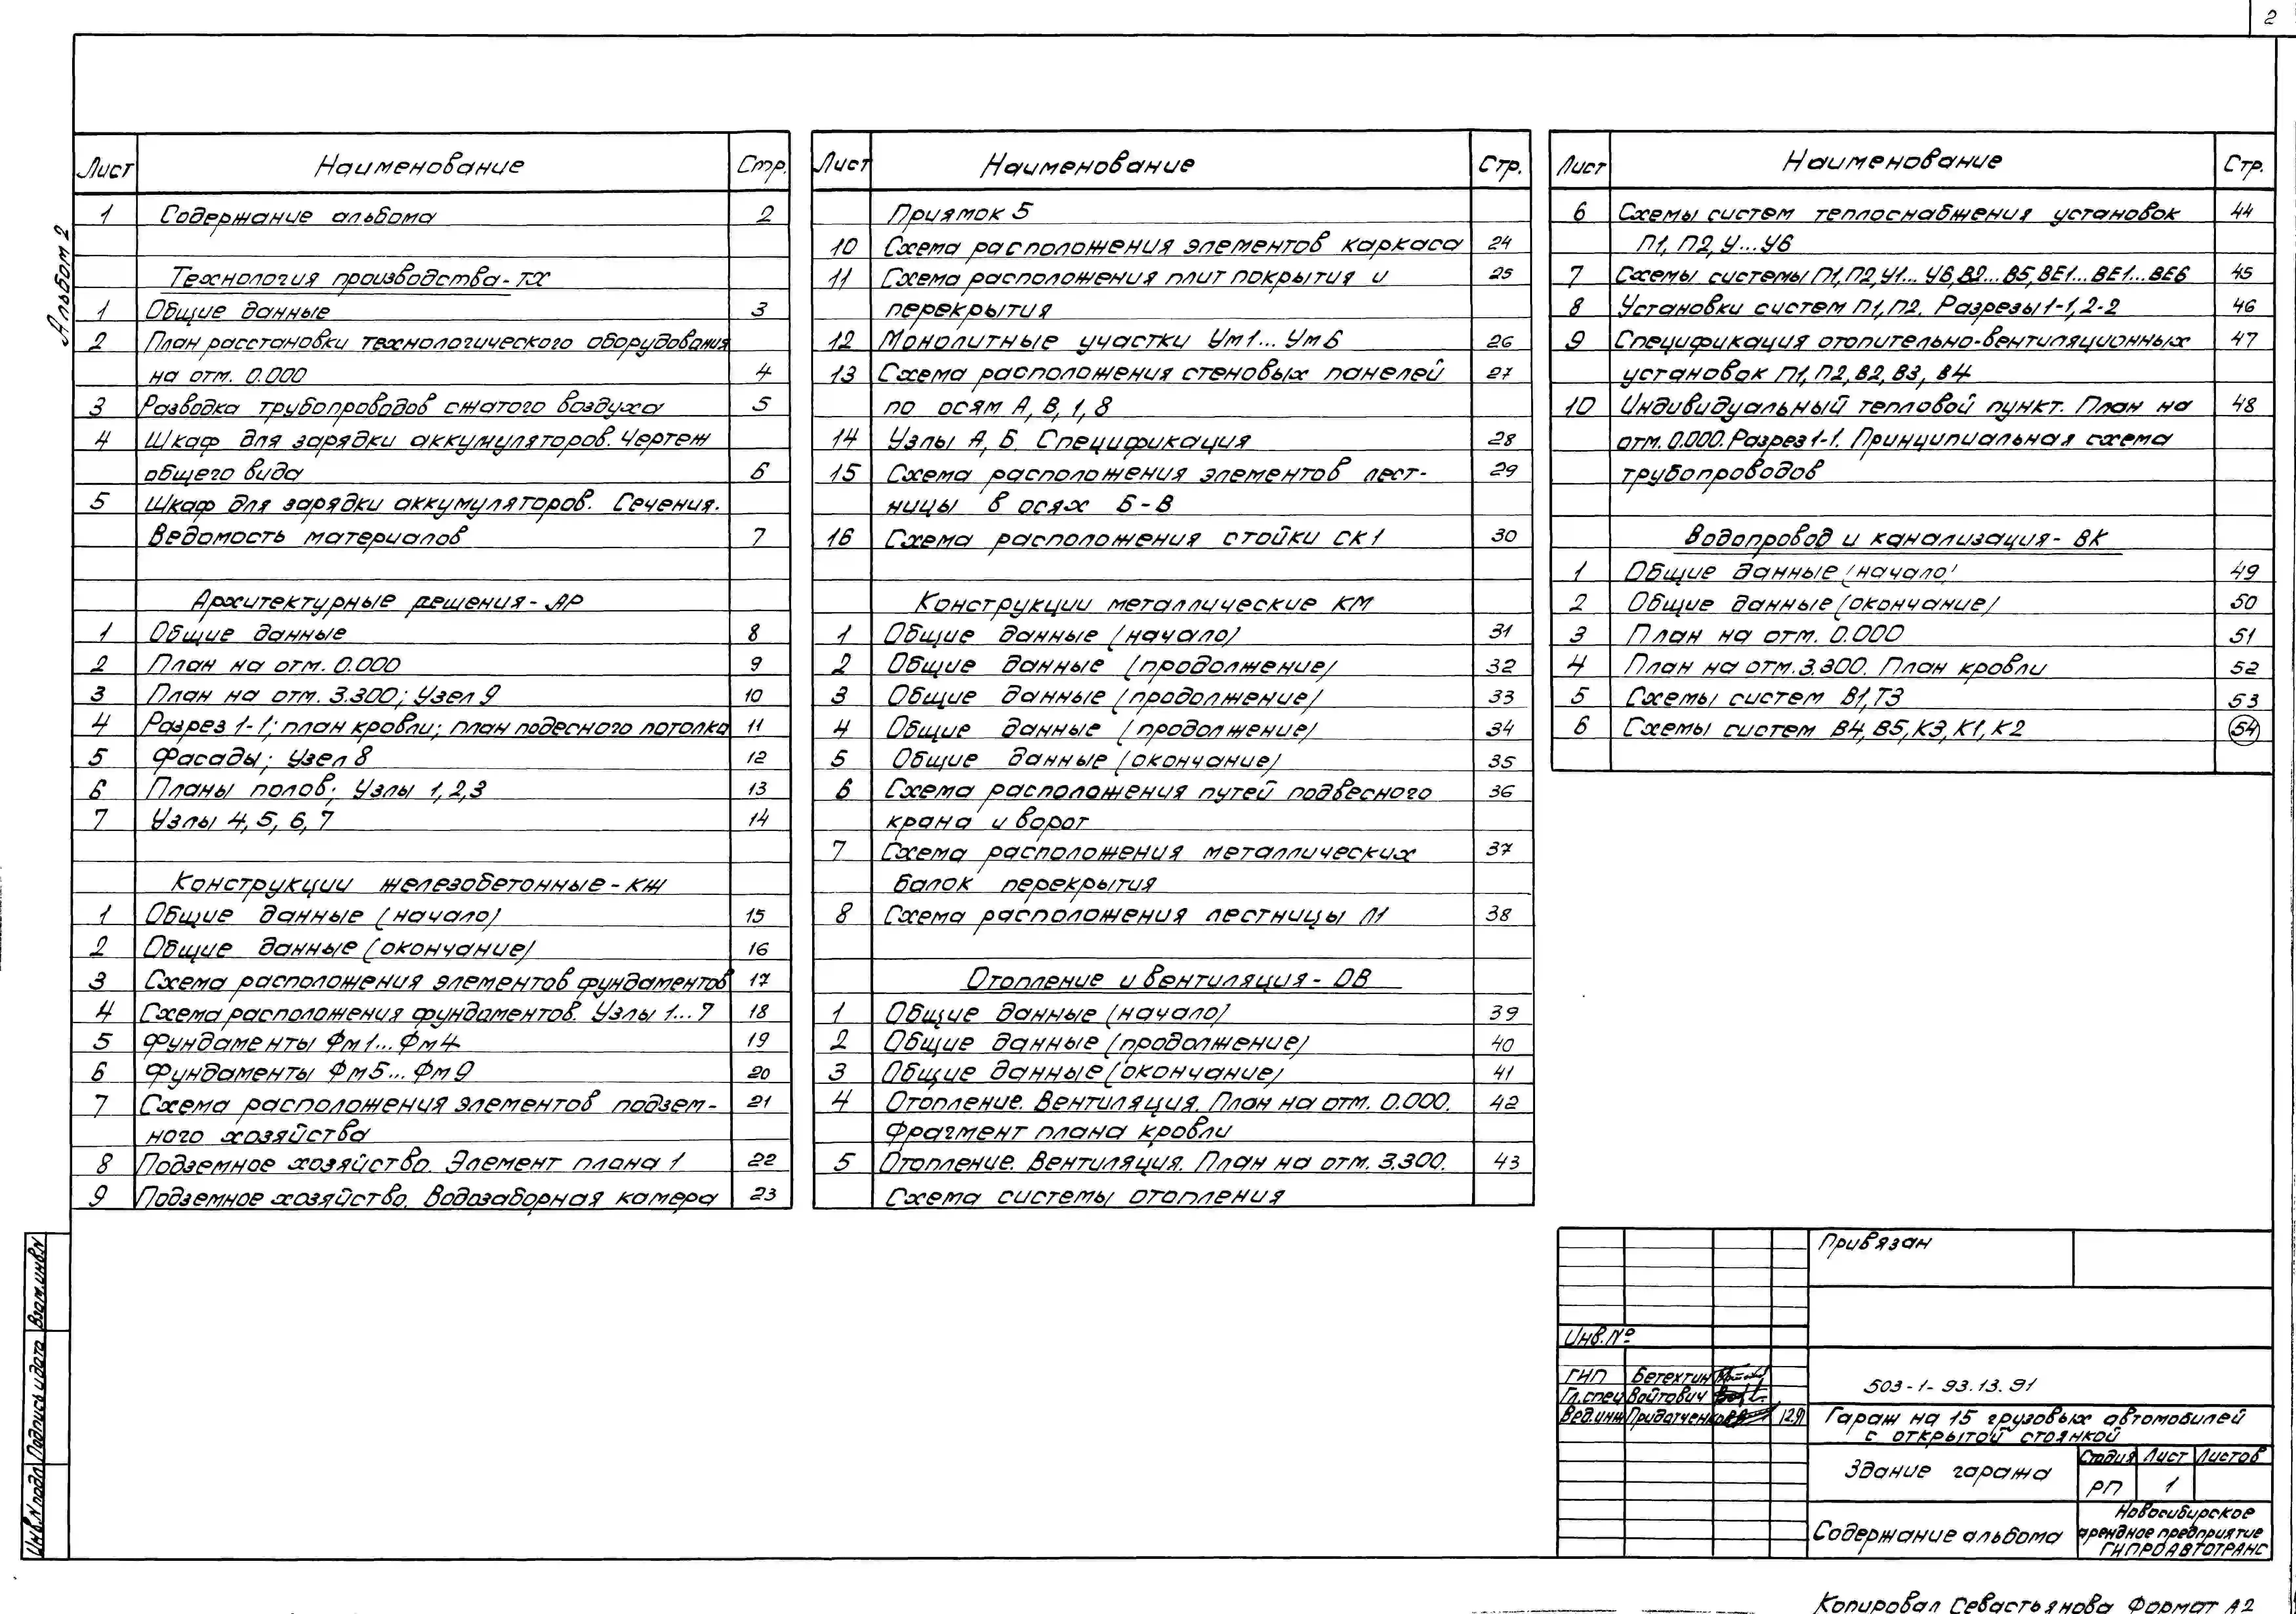 2
Альбом 2
Лист Наименование Стр.
1 Содержание альбома 2
Технология производства-ТХ
1 Общие данные 3
2 План расстановки технологического оборудования
на отм. 0.000 4
3 Разводка трубопроводов сжатого воздуха 5
4 Шкаф для зарядки аккумуляторов. Чертеж
общего вида 6
5 Шкаф для зарядки аккумуляторов. Сечения.
Ведомость материалов 7
Архитектурные решения-АР
1 Общие данные 8
2 План на отм. 0.000 9
3 План на отм. 3.300; Узел 9 10
4 Разрез 1-1; план кровли; план подесного потолка 11
5 Фасады; Узел 8 12
6 Планы полов; Узлы 1,2,3 13
7 Узлы 4, 5, 6, 7 14
Конструкции железобетонные-КЖ
1 Общие данные (начало) 15
2 Общие данные (окончание) 16
3 Схема расположения элементов фундаментов 17
4 Схема расположения фундаментов. Узлы 1...7 18
5 Фундаменты Фм1...Фм4 19
6 Фундаменты Фм5...Фм9 20
7 Схема расположения элементов подзем- 21
ного хозяйства
8 Подземное хозяйство. Элемент плана 1 22
9 Подземное хозяйство. Водозаборная камера 23
Лист Наименование Стр.
Приямок 5
10 Схема расположения элементов каркаса 24
11 Схема расположения плит покрытия и 25
перекрытия
12 Монолитные участки Ум1...Ум6 26
13 Схема расположения стеновых панелей 27
по осям А, В, 1, 8
14 Узлы А, Б. Спецификация 28
15 Схема расположения элементов лест- 29
ницы в осях Б-В
16 Схема расположения стойки СК1 30
Конструкции металлические КМ
1 Общие данные (начало) 31
2 Общие данные (продолжение) 32
3 Общие данные (продолжение) 33
4 Общие данные (продолжение) 34
5 Общие данные (окончание) 35
6 Схема расположения путей подвесного 36
крана и ворот
7 Схема расположения металлических 37
балок перекрытия
8 Схема расположения лестницы Л1 38
Отопление и вентиляция-ОВ
1 Общие данные (начало) 39
2 Общие данные (продолжение) 40
3 Общие данные (окончание) 41
4 Отопление. Вентиляция. План на отм. 0.000. 42
Фрагмент плана кровли
5 Отопление. Вентиляция. План на отм. 3.300. 43
Схема системы отопления
Лист Наименование Стр.
6 Схемы систем теплоснабжения установок 44
П1, П2, У...У6
7 Схемы системы П1, П2, У1...У6, В2...В5, ВЕ1...ВЕ1...ВЕ6 45
8 Установки систем П1, П2. Разрезы 1-1, 2-2 46
9 Спецификация отопительно-вентиляционных 47
установок П1, П2, В2, В3, В4
10 Индивидуальный тепловой пункт. План на 48
отм. 0.000. Разрез 1-1. Принципиальная схема
трубопроводов
Водопровод и канализация-ВК
1 Общие данные (начало) 49
2 Общие данные (окончание) 50
3 План на отм. 0.000 51
4 План на отм. 3.300. План кровли 52
5 Схемы систем В1, Т3 53
6 Схемы систем В4, В5, К3, К1, К2 54
Привязан
Инв. №
ГИП Бетехтин
Гл.спец Войтович
Вед.инж Придатченко 12.91
503-1-93.13.91
Гараж на 15 грузовых автомобилей
с открытой стоянкой
Здание гаража
Стадия Лист Листов
РП 1
Содержание альбома
Новосибирское
арендное предприятие
ГИПРОАВТОТРАНС
Инв.N подл Подпись и дата Взам.инв.N
Копировал Севастьянова Формат А2